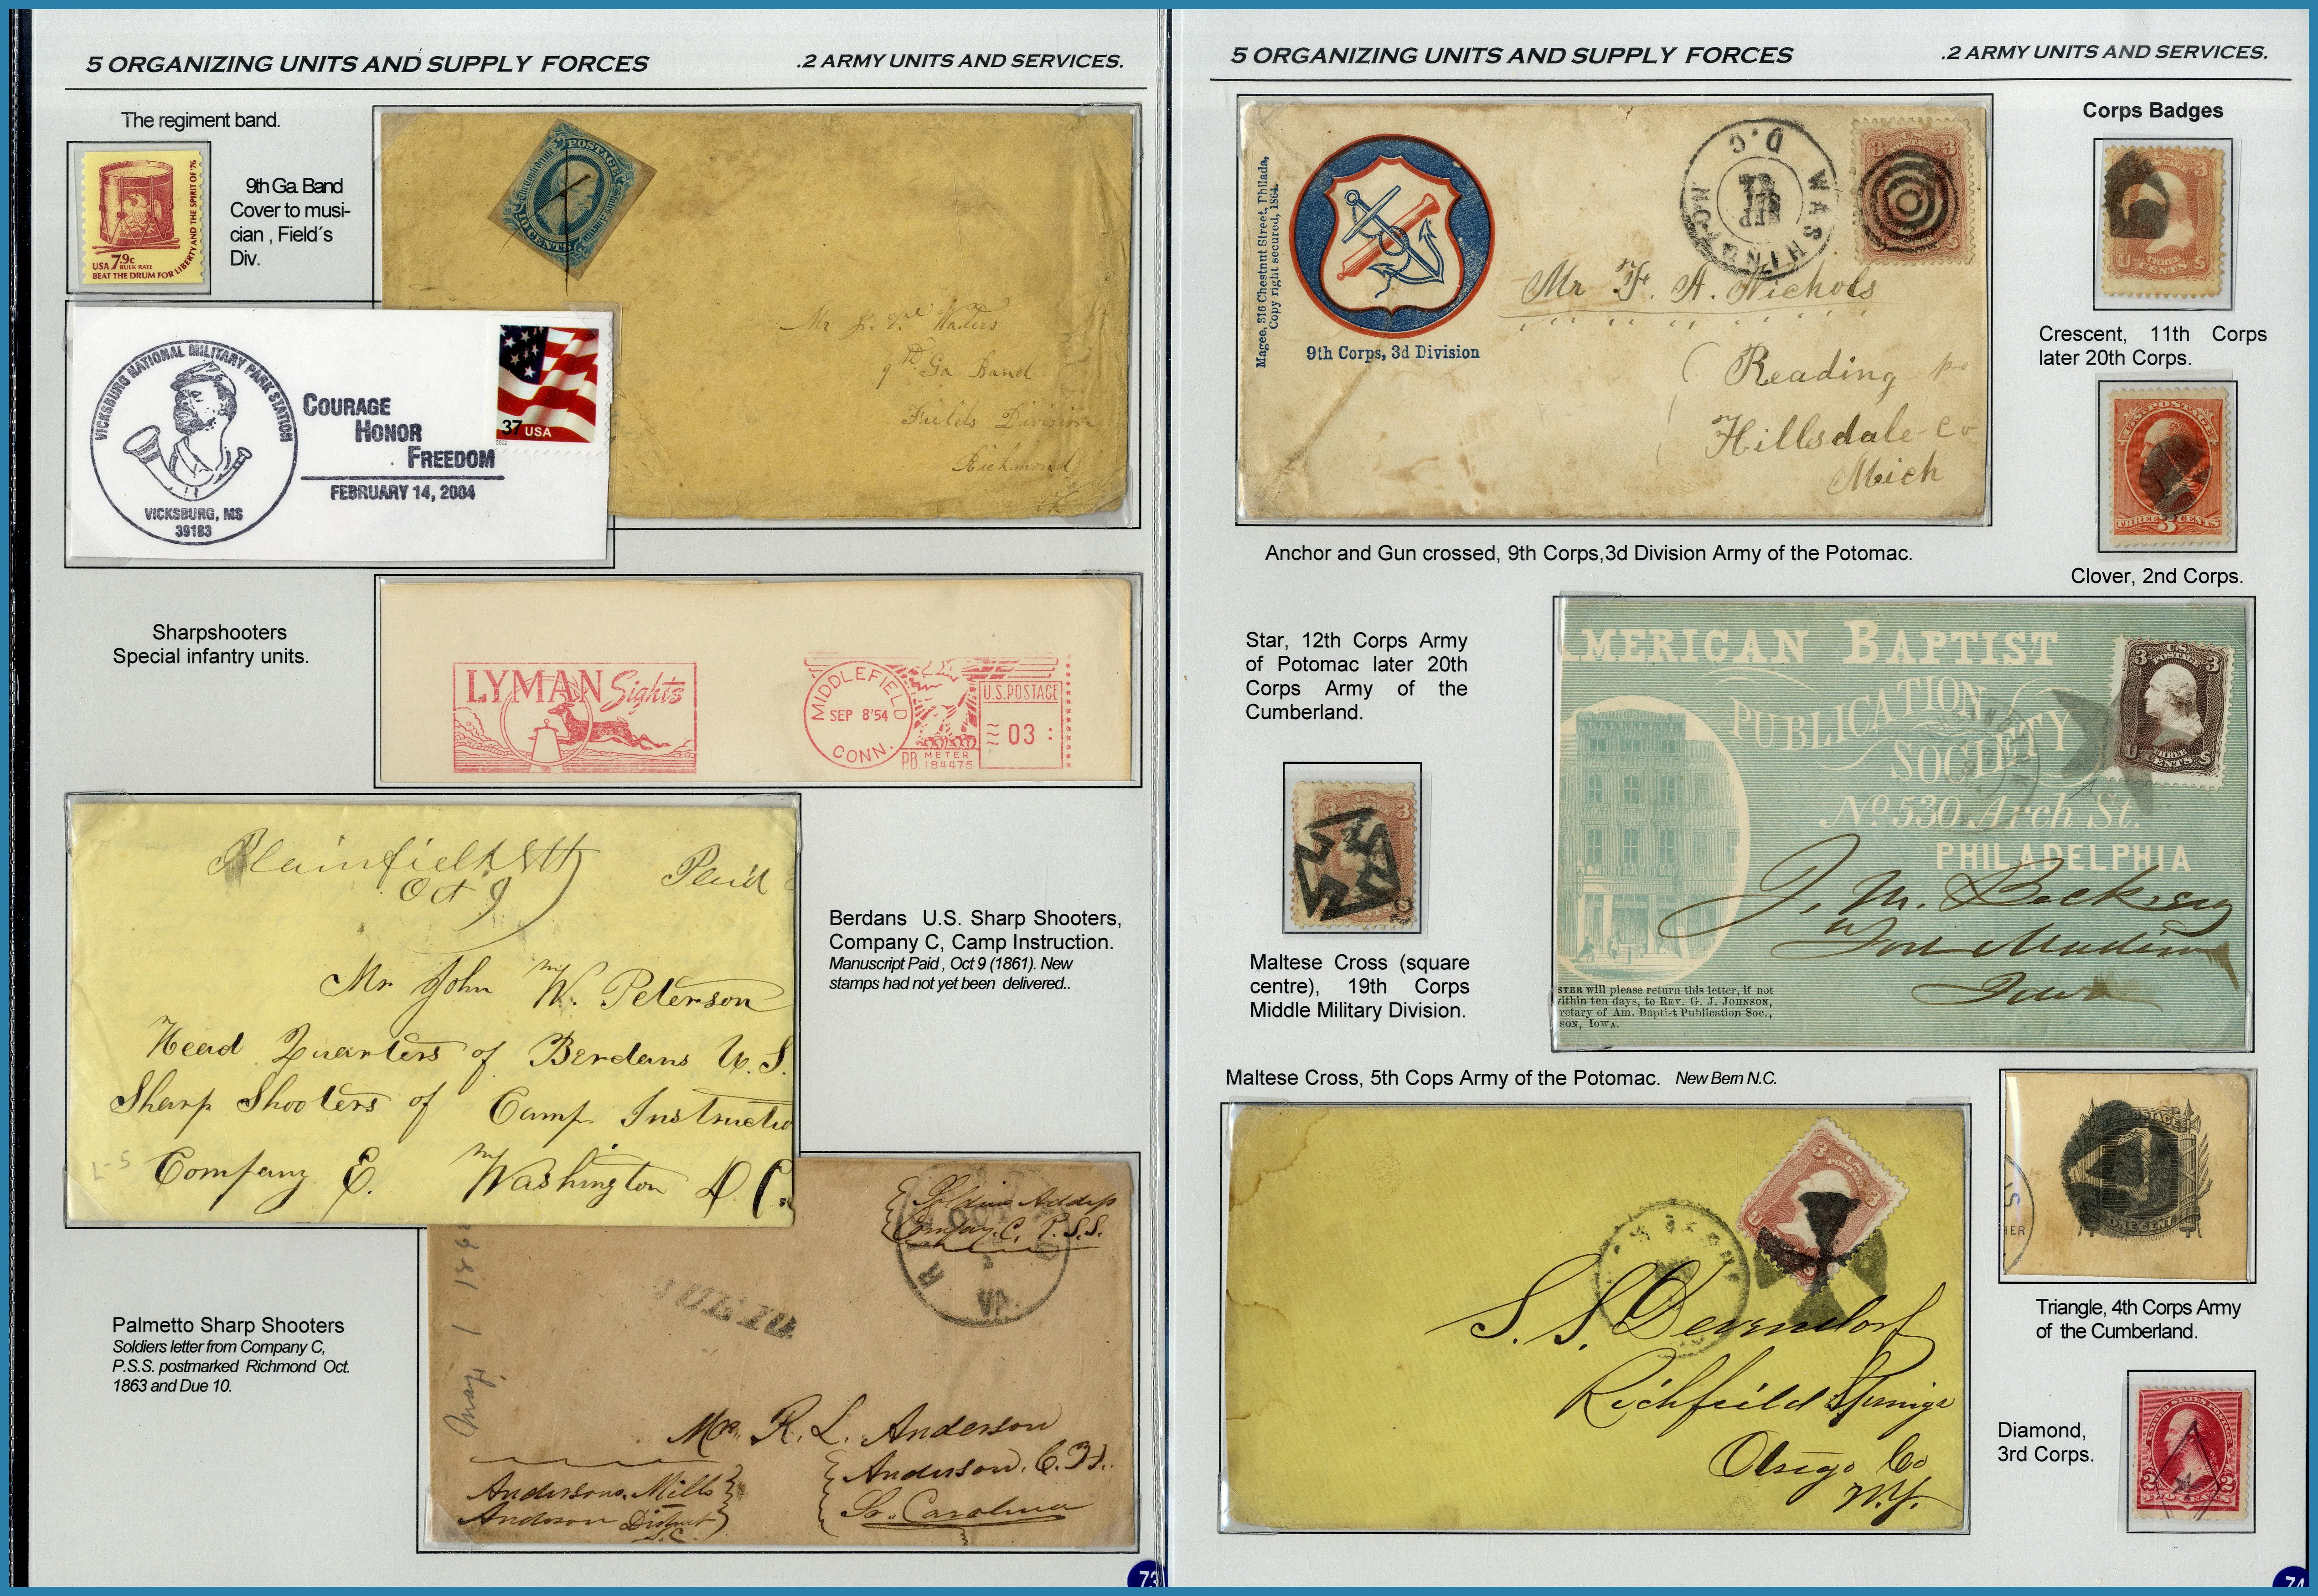 5 ORGANIZING UNITS AND SUPPLY FORCES
.2 ARMY UNITS AND SERVICES.
The regiment band.
USA 7.9c
BULK RATE
BEAT THE DRUM FOR LIBERTY AND THE SPIRIT OF 76
9th Ga. Band
Cover to musi-
cian , Field´s
Div.
POSTAGE
TEN CENTS
Mr
9th Ga Band
Fields Division
Richmond
VICKSBURG NATIONAL MILITARY PARK STATION
VICKSBURG, MS
39183
COURAGE
HONOR
FREEDOM
FEBRUARY 14, 2004
37 USA
2002
Sharpshooters
Special infantry units.
LYMAN Sights
MIDDLEFIELD
SEP 8'54
CONN.
U.S. POSTAGE
03
P.B. METER
184475
Plainfield
Oct 9
Paid
Mr John W. Peterson
Head Quarters of Berdans U.S.
Sharp Shooters of Camp Instructio
Company E. Washington D C.
L-5
Berdans U.S. Sharp Shooters,
Company C, Camp Instruction.
Manuscript Paid , Oct 9 (1861). New
stamps had not yet been delivered..
Palmetto Sharp Shooters
Soldiers letter from Company C,
P.S.S. postmarked Richmond Oct.
1863 and Due 10.
Company C. P.S.S.
VA
May 1
R. L. Anderson
Anderson, C.H.
So. Carolina
Andersons Mills
Anderson District
S.C.
73
5 ORGANIZING UNITS AND SUPPLY FORCES
.2 ARMY UNITS AND SERVICES.
Magee, 316 Chestnut Street, Philada,
Copy right secured, 1864.
9th Corps, 3d Division
WASHINGTON
D.C
SEP
Mr F. A. Nichols
Reading
Hillsdale Co
Mich
Anchor and Gun crossed, 9th Corps,3d Division Army of the Potomac.
Corps Badges
Crescent, 11th Corps
later 20th Corps.
U.S. POSTAGE
THREE 3 CENTS
Clover, 2nd Corps.
Star, 12th Corps Army
of Potomac later 20th
Corps Army of the
Cumberland.
MERICAN BAPTIST
PUBLICATION
SOCIETY
No 530 Arch St.
PHILADELPHIA
3 U.S. POSTAGE 3
U THREE CENTS S
Fort Madison
Iowa
STER will please return this letter, if not
ithin ten days, to REV. G. J. JOHNSON,
retary of Am. Baptist Publication Soc.,
SON, IOWA.
Maltese Cross (square
centre), 19th Corps
Middle Military Division.
Maltese Cross, 5th Cops Army of the Potomac. New Bern N.C.
S. S. Devendorf
Richfield Springs
Otsego Co
N.Y.
POSTAGE
ONE CENT
Triangle, 4th Corps Army
of the Cumberland.
Diamond,
3rd Corps.
UNITED STATES POSTAGE
2 2
TWO CENTS
74